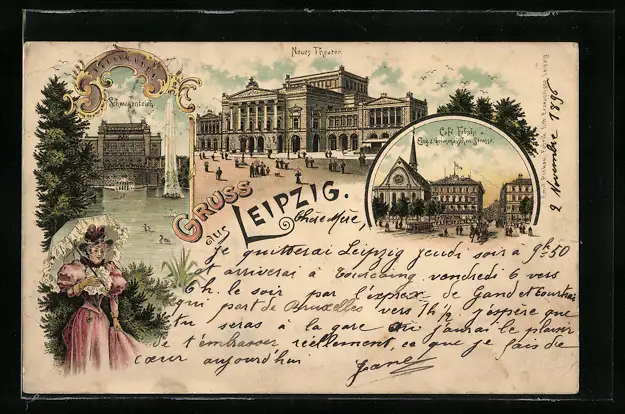 Neues Theater
Schwanenteich
Café Felsche
Gruss
aus
Leipzig.
2 Novembre 1896
Chère Mère,
Je quitterai Leipzig jeudi soir à 9h.50
et arriverai à Tourcoing vendredi 6 vers
6h. le soir par l'express de Gand et Courtrai
qui part de Bruxelles vers 4h½ j'espère que
tu seras à la gare où j'aurai le plaisir
de t'embrasser réellement, ce que je fais de
cœur aujourd'hui